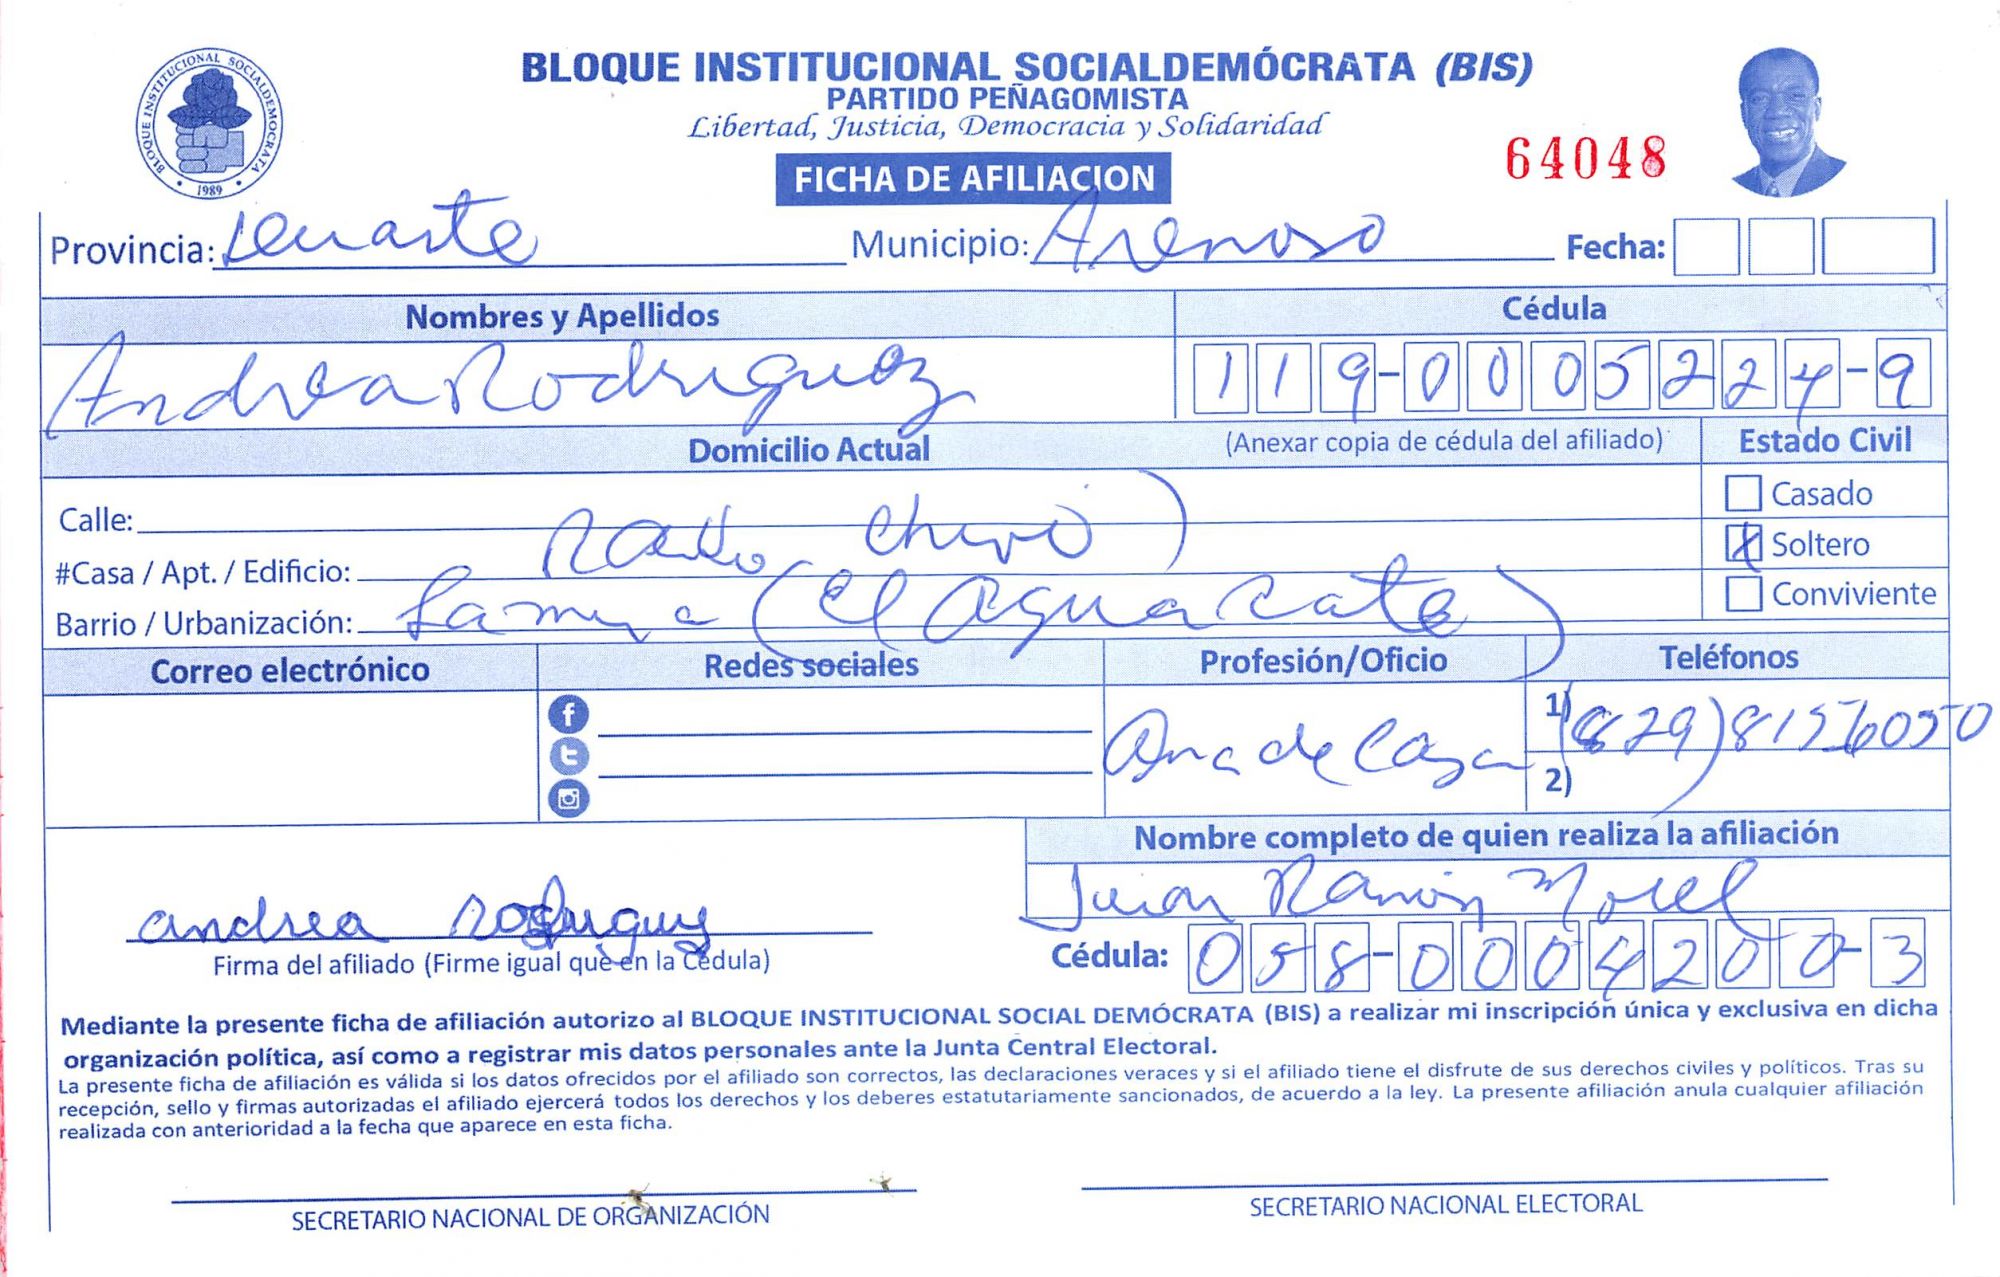 BLOQUE INSTITUCIONAL SOCIALDEMÓCRATA
1989
BLOQUE INSTITUCIONAL SOCIALDEMÓCRATA (BIS)
PARTIDO PEÑAGOMISTA
Libertad, Justicia, Democracia y Solidaridad
FICHA DE AFILIACION
64048
Provincia: Municipio: Arenoso Fecha:
Nombres y Apellidos Cédula
Andrea Rodriguez 119-0005224-9
Domicilio Actual (Anexar copia de cédula del afiliado) Estado Civil
Calle: Casado
#Casa / Apt. / Edificio: X Soltero
Barrio / Urbanización: (El Aguacate) Conviviente
Correo electrónico Redes sociales Profesión/Oficio Teléfonos
Ama de Casa 1) (829) 8156050
2)
Nombre completo de quien realiza la afiliación
Juan Ramón Morel
andrea rodriguez
Firma del afiliado (Firme igual que en la Cédula) Cédula: 058-0004200-3
Mediante la presente ficha de afiliación autorizo al BLOQUE INSTITUCIONAL SOCIAL DEMÓCRATA (BIS) a realizar mi inscripción única y exclusiva en dicha
organización política, así como a registrar mis datos personales ante la Junta Central Electoral.
La presente ficha de afiliación es válida si los datos ofrecidos por el afiliado son correctos, las declaraciones veraces y si el afiliado tiene el disfrute de sus derechos civiles y políticos. Tras su
recepción, sello y firmas autorizadas el afiliado ejercerá todos los derechos y los deberes estatutariamente sancionados, de acuerdo a la ley. La presente afiliación anula cualquier afiliación
realizada con anterioridad a la fecha que aparece en esta ficha.
SECRETARIO NACIONAL DE ORGANIZACIÓN SECRETARIO NACIONAL ELECTORAL